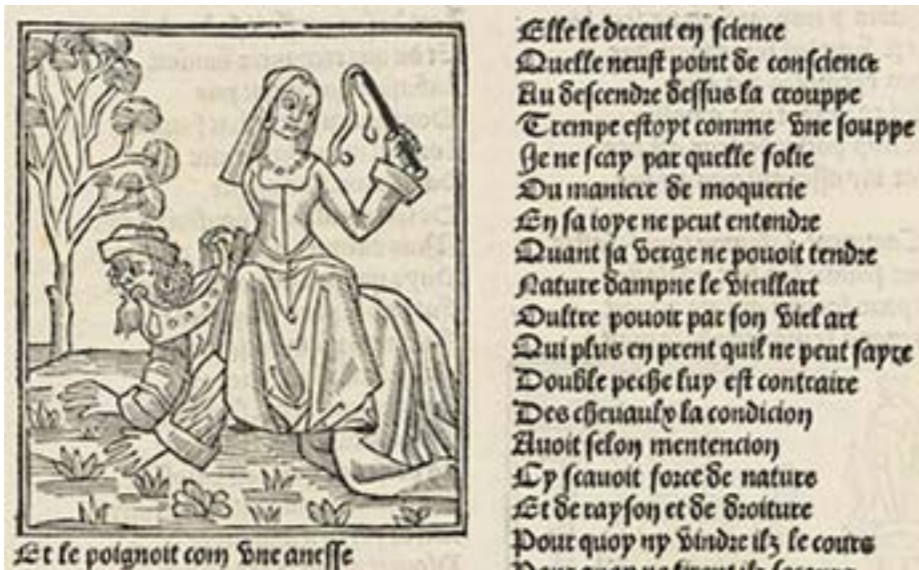 Et le poignoit com vne anesse
Elle le deceut en science
Quelle neust point de conscience
Au descendre dessus la crouppe
Trempe estoyt comme vne souppe
Je ne scay par quelle folie
Ou maniere de moquerie
En sa ioye ne peut entendre
Quant sa verge ne pouoit tendre
Nature dampne le vieillart
Oultre pouoir par son vielart
Qui plus en prent quil ne peut fayre
Double peche luy est contraire
Des cheuaulx la condicion
Auoit selon mentencion
Cy scauoit force de nature
Et de rayson et de droiture
Pour quoy ny vindre ilz le cours